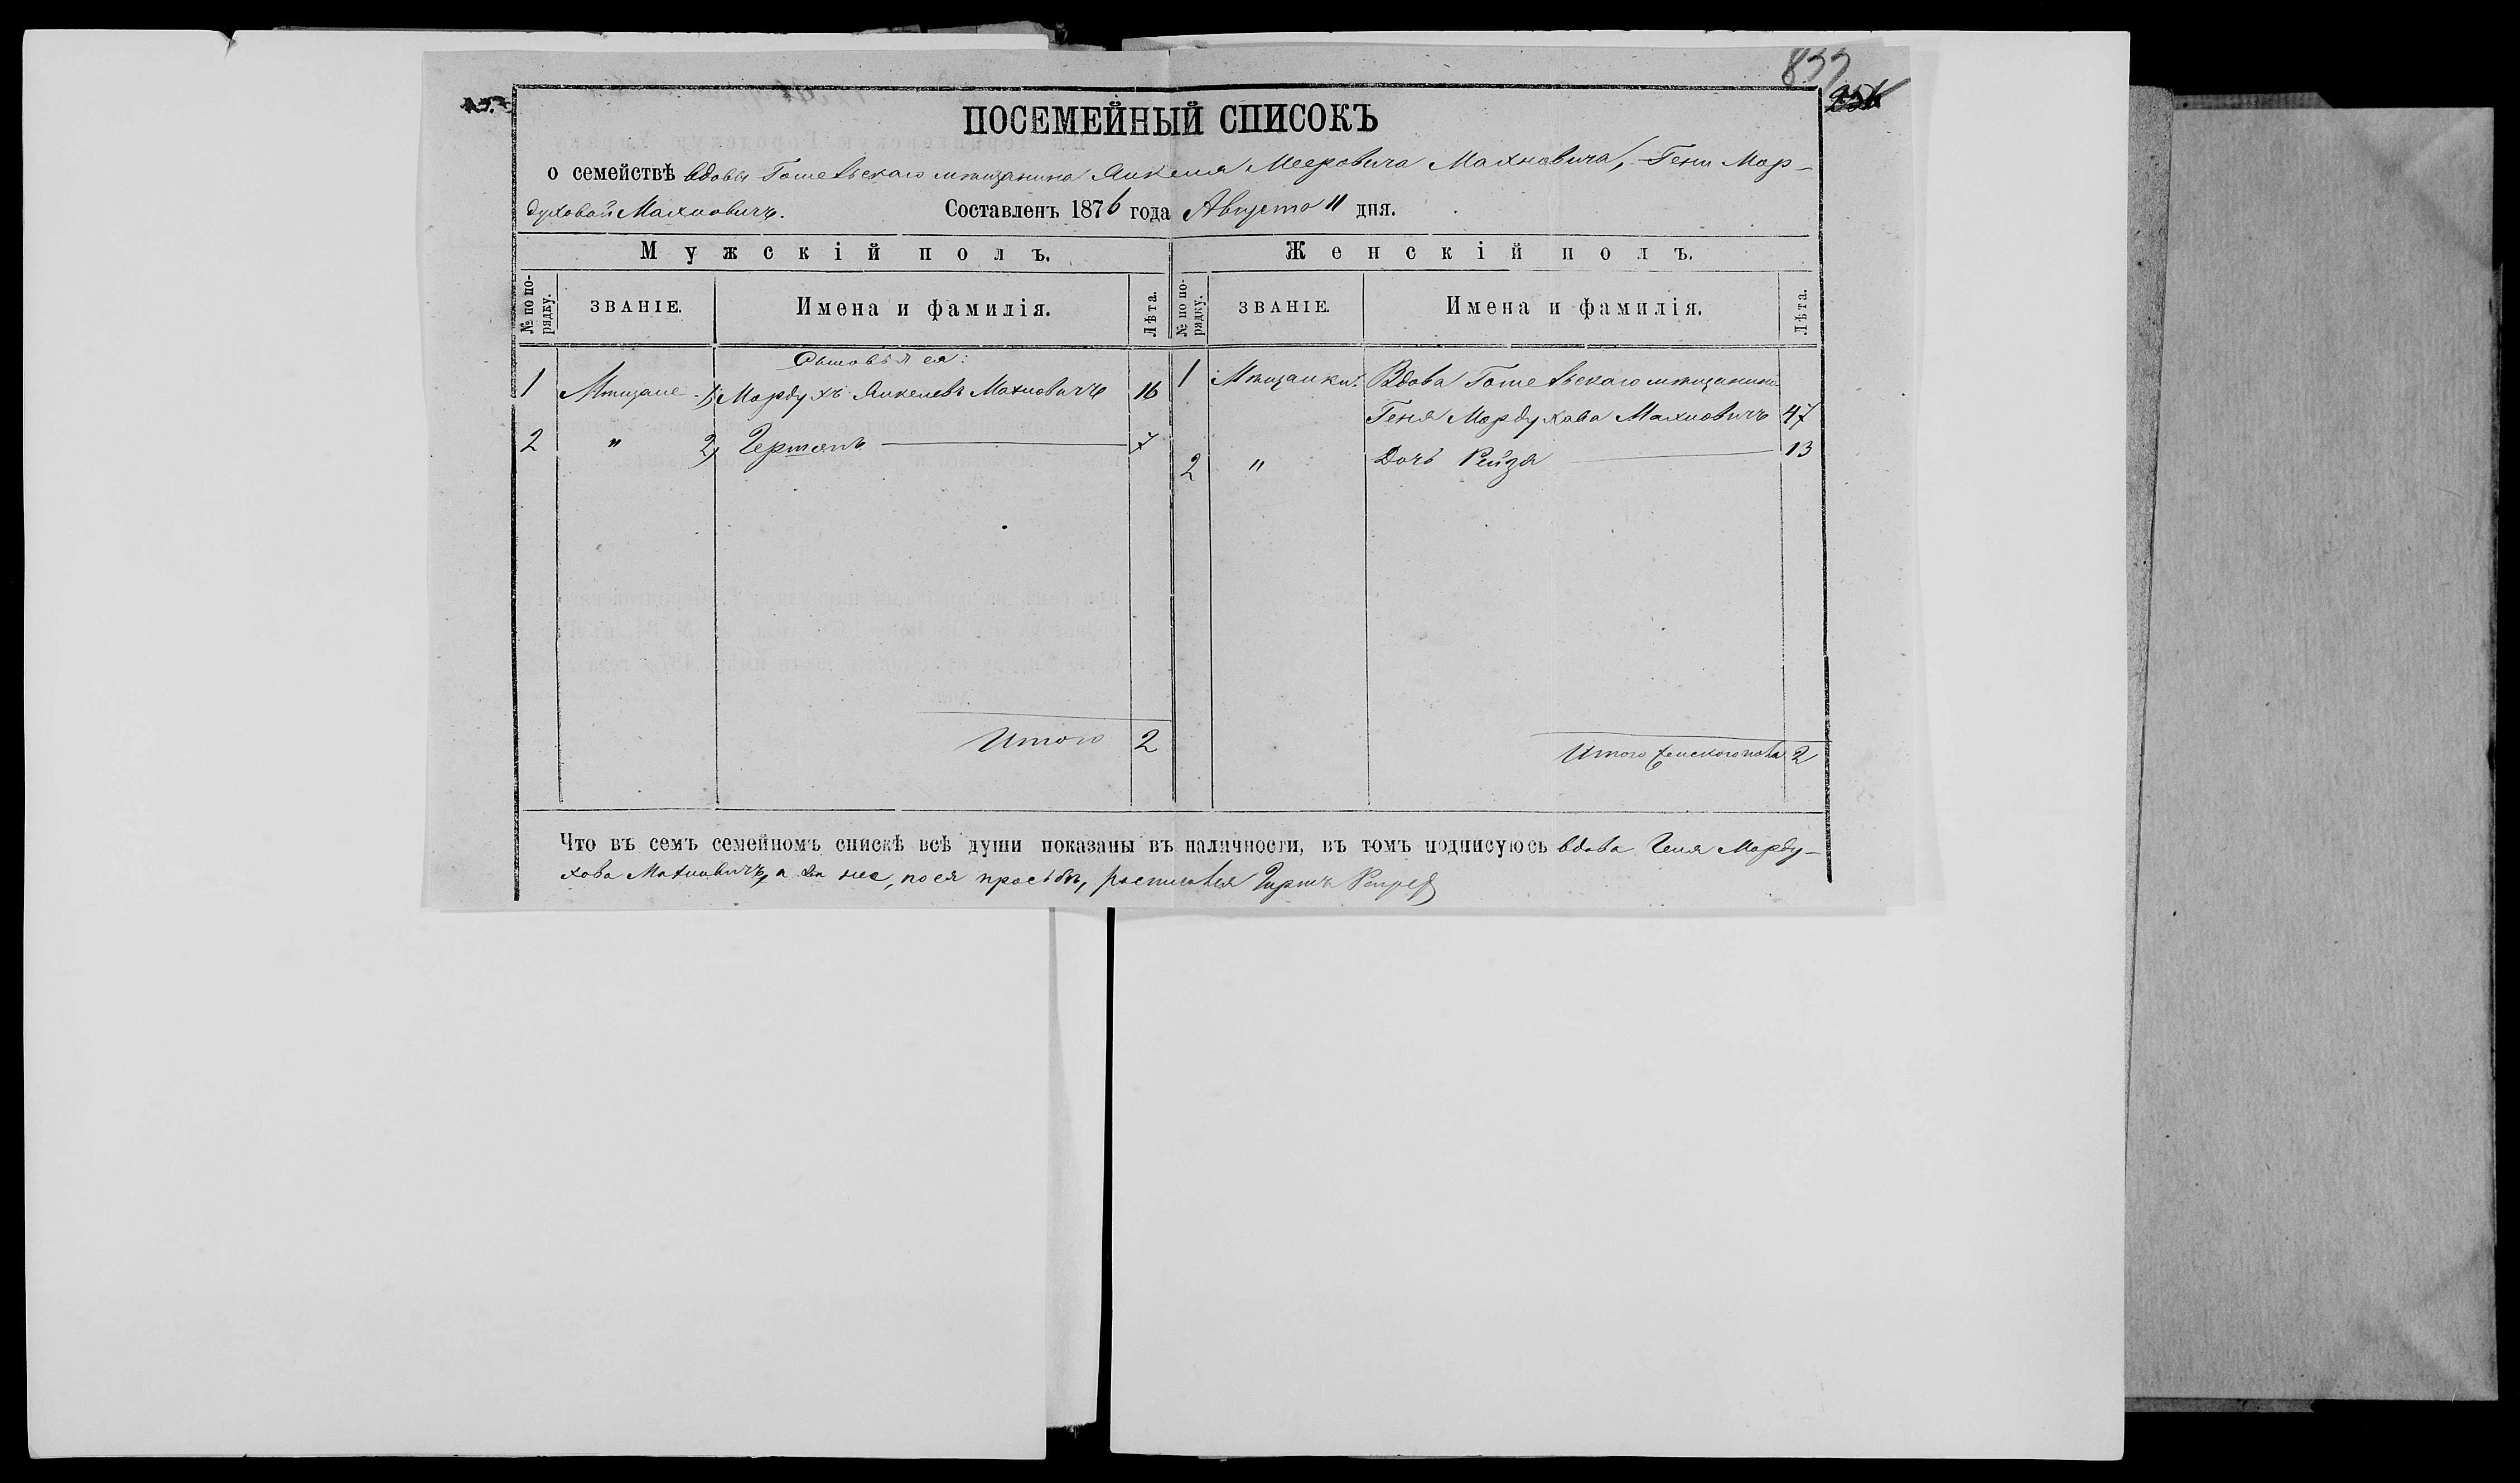 833
ПОСЕМЕЙНЫЙ СПИСОКЪ
о семействѣ вдовы Гомельскаго мѣщанина Янкеля Мееровича Махновича, Гени Мор-
духовой Махновичъ. Составленъ 1876 года Августа 11 дня.
Мужскій полъ. Женскій полъ.
№ по по-рядку. ЗВАНІЕ. Имена и фамилія. Лѣта. № по по-рядку. ЗВАНІЕ. Имена и фамилія. Лѣта.
Сыновья ея:
1 Мѣщане 1) Мордухъ Янкелевъ Махновичъ 16 1 Мѣщанки. Вдова Гомельскаго мѣщанина
Геня Мордухова Махновичъ 47
2 " 2) 7
2 " Дочь Рейза 13
Итого 2 Итого женскаго пола 2
Что въ семъ семейномъ спискѣ всѣ души показаны въ наличности, въ томъ подписуюсь вдова Геня Морду-
хова Махновичъ, а за нее, по ея просьбѣ, росписался